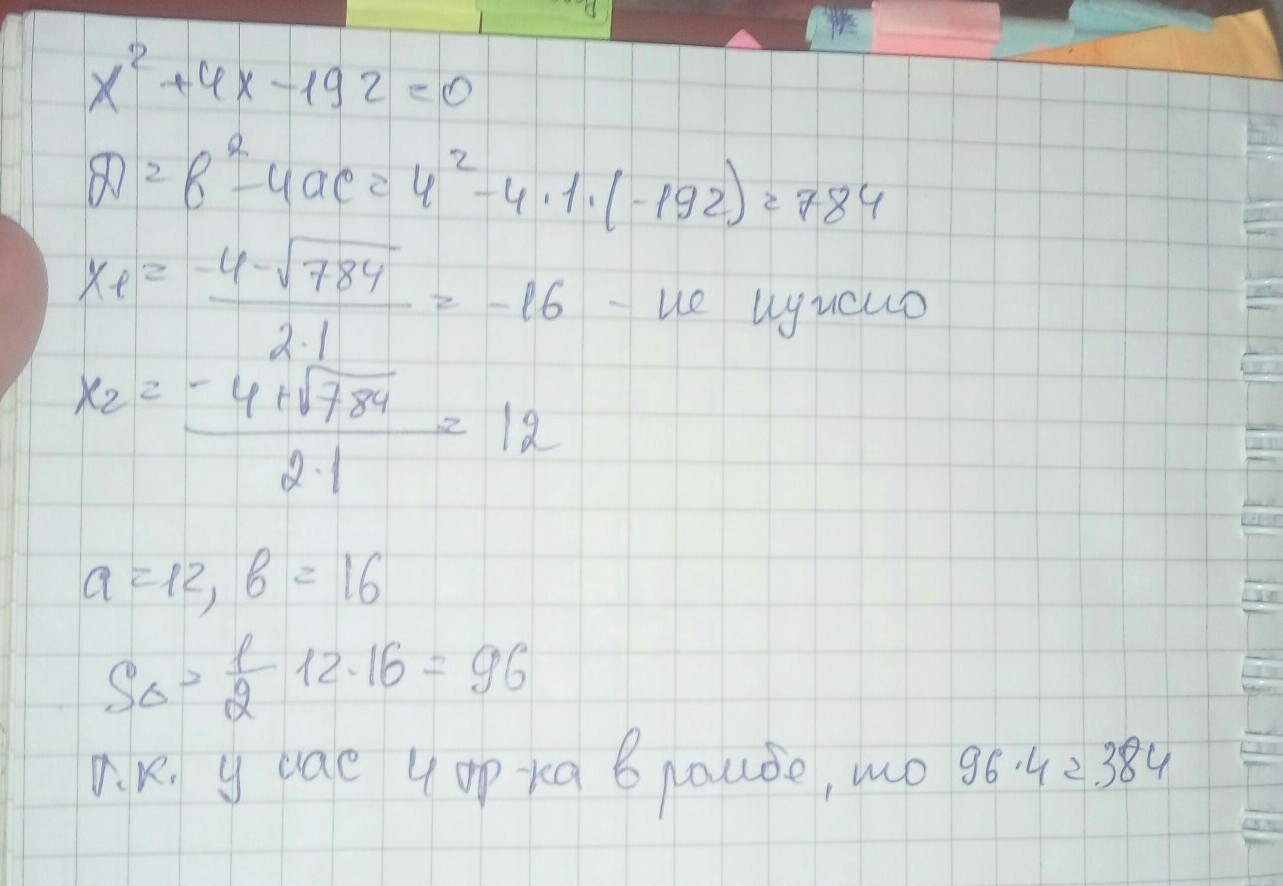 x² + 4x - 192 = 0
D = b² - 4ac = 4² - 4·1·(-192) = 784
x₁ = (-4-√784)/(2·1) = -16 - не нужно
x₂ = (-4+√784)/(2·1) = 12
a = 12, b = 16
S△ = 1/2 12·16 = 96
т.к. у нас 4 тр-ка в ромбе, то 96·4 = 384